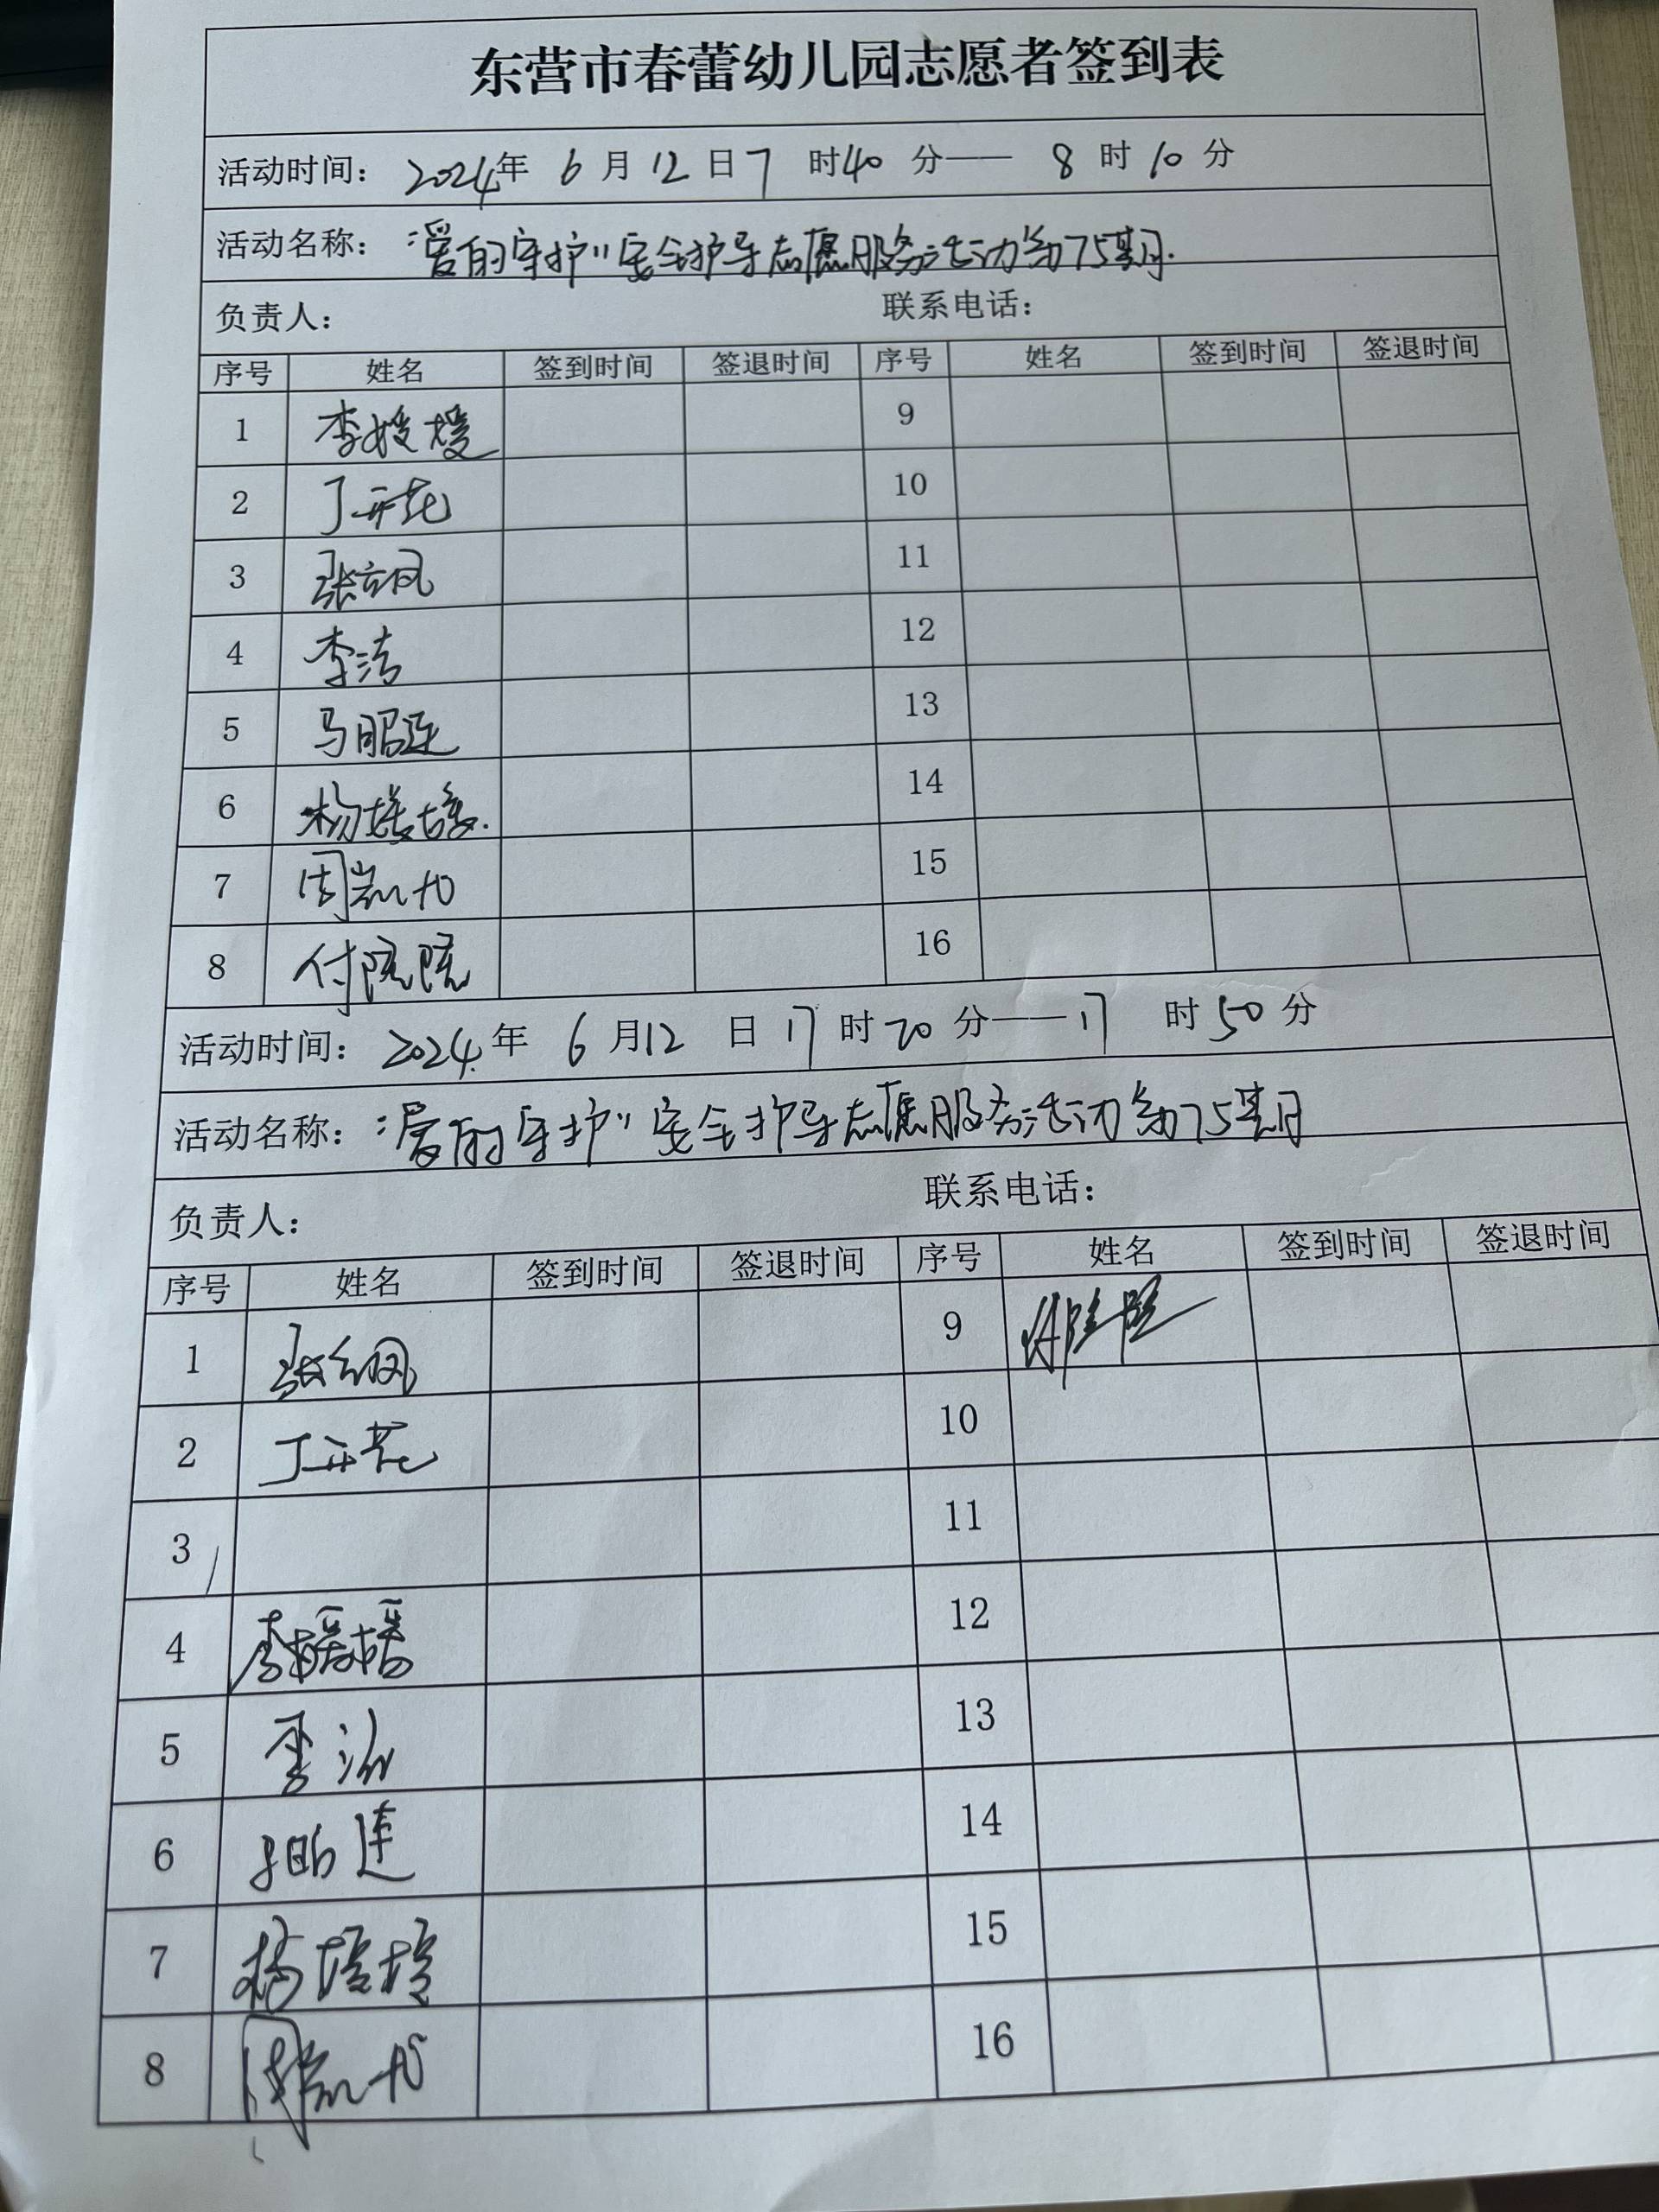 东营市春蕾幼儿园志愿者签到表
活动时间： 2024年 6 月 12 日 7 时 40 分—— 8 时 10 分
活动名称： “爱的守护”安全护导志愿服务活动第75期.
负责人： 联系电话：
序号 姓名 签到时间 签退时间 序号 姓名 签到时间 签退时间
1 李媛媛 9
2 丁开花 10
3 张立凤 11
4 李洁 12
5 马昭连 13
6 杨 14
7 周凯 15
8 付院院 16
活动时间： 2024 年 6 月 12 日 17 时 20 分——17 时 50 分
活动名称： “爱的守护”安全护导志愿服务活动第75期
负责人： 联系电话：
序号 姓名 签到时间 签退时间 序号 姓名 签到时间 签退时间
1 张立凤 9
2 丁开花 10
3 11
4 李媛媛 12
5 李洁 13
6 马昭连 14
7 杨 15
8 周凯 16